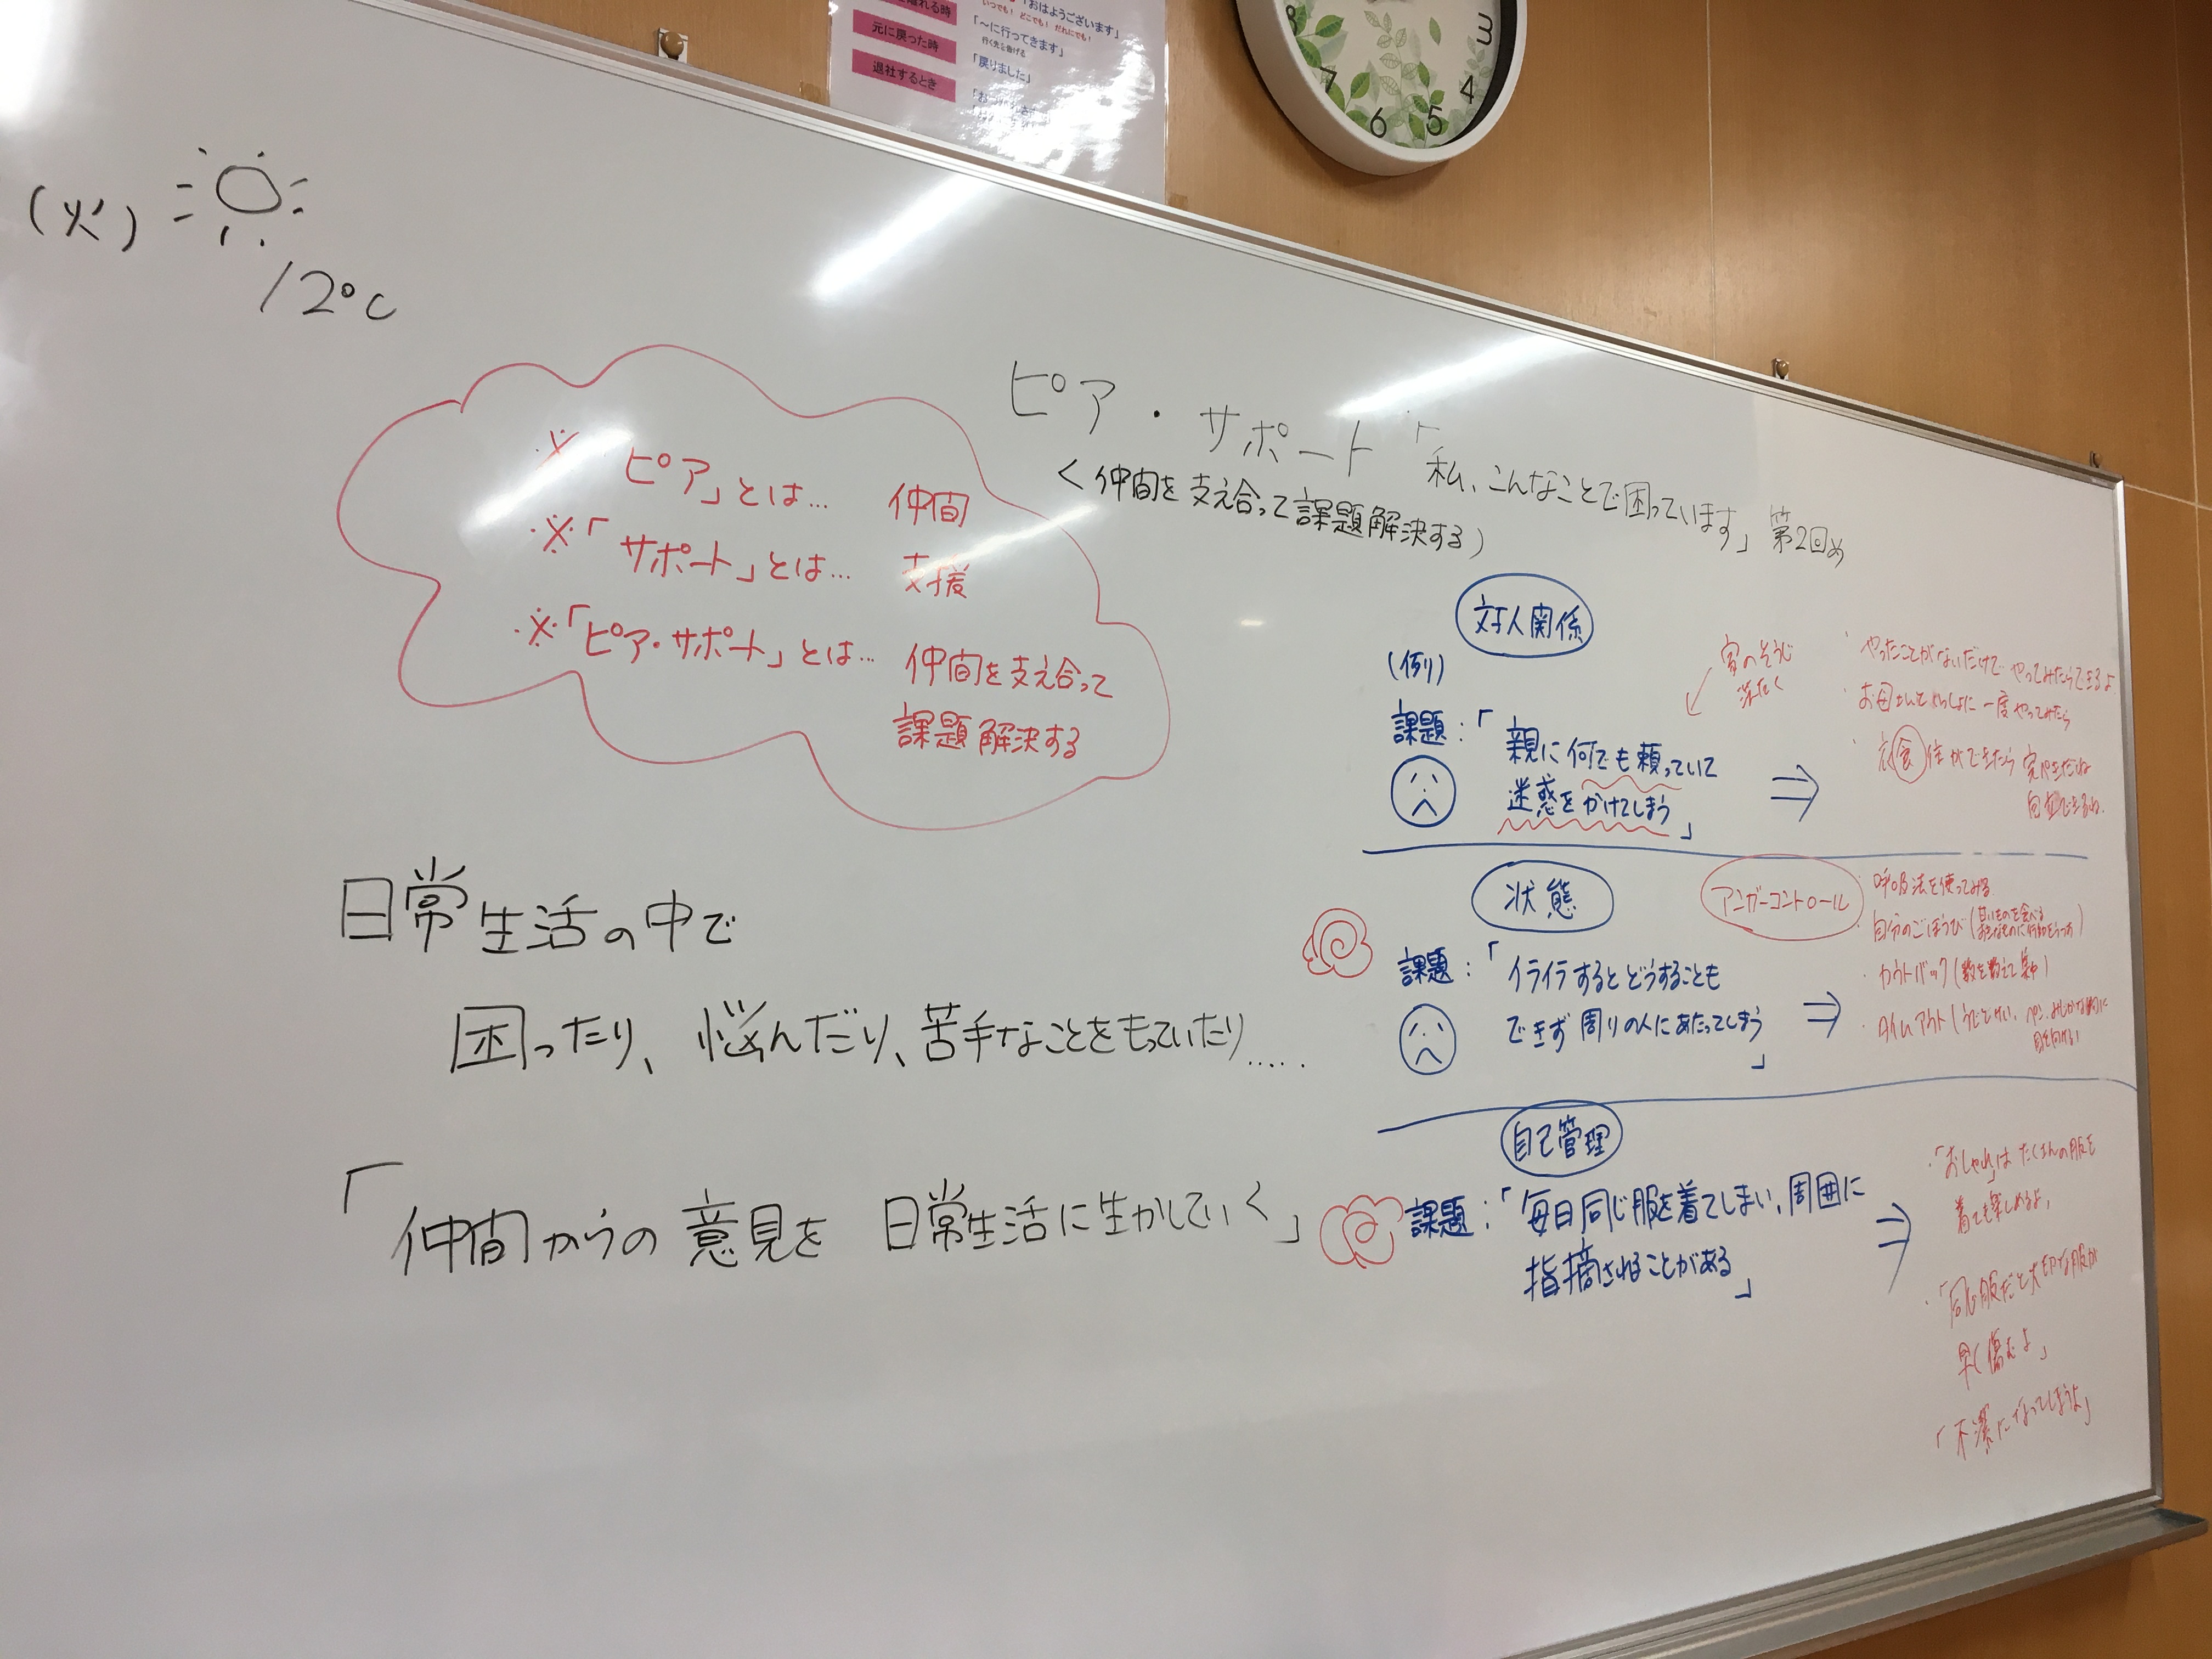 離れる時
「おはようございます」
いつでも！どこでも！だれにでも！
元に戻った時
「～に行ってきます」
行く先を告げる
退社するとき
「戻りました」
8
7
6
5
4
3
(火)
12°C
ピア・サポート「私、こんなことで困っています」第2回め
<仲間を支え合って課題解決する)
※「ピア」とは… 仲間
※「サポート」とは… 支援
※「ピア・サポート」とは… 仲間を支え合って
課題解決する
日常生活の中で
困ったり、悩んだり、苦手なことをもっていたり.....
「仲間からの意見を 日常生活に生かしていく」
対人関係
(例)
課題：「親に何でも頼っていて
迷惑をかけてしまう」
⇒
家のそうじ
洗たく
・やったことがないだけで やってみたらできるよ
・お母さんといっしょに一度やってみたら
・衣食住ができたら完ぺきだね
自立できるね.
状態
アンガーコントロール
課題：「イライラするとどうすることも
できず周りの人にあたってしまう」
⇒
・呼吸法を使ってみる
・自分のごほうび(甘いものを食べる
・カウントバック(数を数えて集中)
・タイムアウト
目を向ける)
自己管理
課題：「毎日同じ服を着てしまい、周囲に
指摘されることがある」
⇒
・「おしゃれ」はたくさんの服を
着ても楽しめるよ,
・「同じ服だと大切な服が
早く傷むよ」
「不潔になってしまうよ」